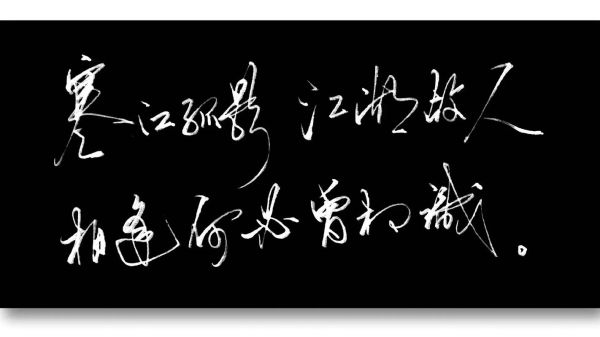 寒江孤影 江湖故人
相逢何必曾相识。